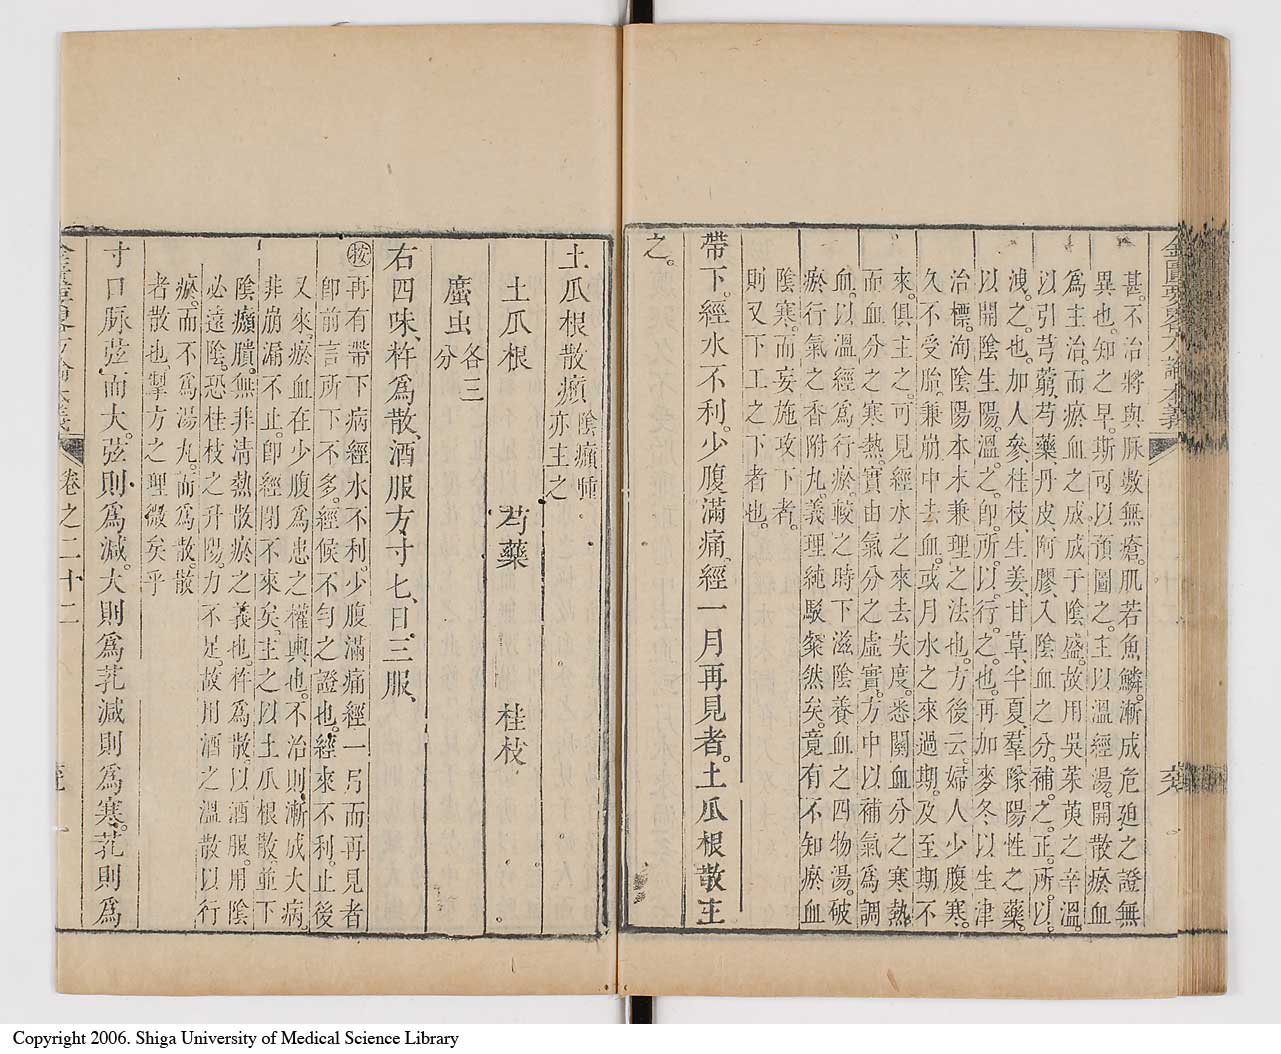 甚。不治將與脉數無瘡。肌若魚鱗。漸成危廹之證無
異也。知之早。斯可以預圖之。主以溫經湯。開散瘀血
爲主治。而瘀血之成。成于陰盛。故用吳茱萸之辛溫。
以引芎藭。芍藥。丹皮。阿膠。入陰血之分。補之。正所以
洩之也。加人參桂枝。生姜甘草。半夏羣隊陽性之藥。
以開陰生陽。溫之。卽所以行之也。再加麥冬以生津
治標。洵陰陽本末兼理之法也。方後云。婦人少腹寒。
久不受胎。兼崩中去血。或月水之來過期。及至期不
來。俱主之。可見經水之來去失度。悉關血分之寒熱。
而血分之寒熱。實由氣分之虛實。方中以補氣爲調
血。以溫經爲行瘀。較之時下滋陰養血之四物湯。破
瘀行氣之香附丸。義理純駁粲然矣。竟有不知瘀血
陰寒。而妄施攻下者。
則又下工之下者也。
帶下。經水不利。少腹滿痛。經一月再見者。土瓜根散主
之。
土瓜根散㿗 陰㿗腫亦主之
土瓜根 芍藥 桂枝
䗪虫各三分
右四味、杵爲散、酒服方寸匕、日三服、
按再有帶下病經水不利。少腹滿痛經一月而再見者
卽前言所下不多。經候不勻之證也。經來不利。止後
又來。瘀血在少腹爲患之權輿也。不治則漸成大病。
非崩漏不止。卽經閉不來矣。主之以土瓜根散。並下
陰㿗㿉。無非清熱散瘀之義也。杵爲散。以酒服。用陰
必遠陰。恐桂枝之升陽。力不足。故用酒之溫散以行
瘀。而不爲湯丸。而爲散。散
者散也。製方之理微矣乎
寸口脉弦而大。弦則爲減。大則爲芤。減則爲寒。芤則爲
卷之二十二